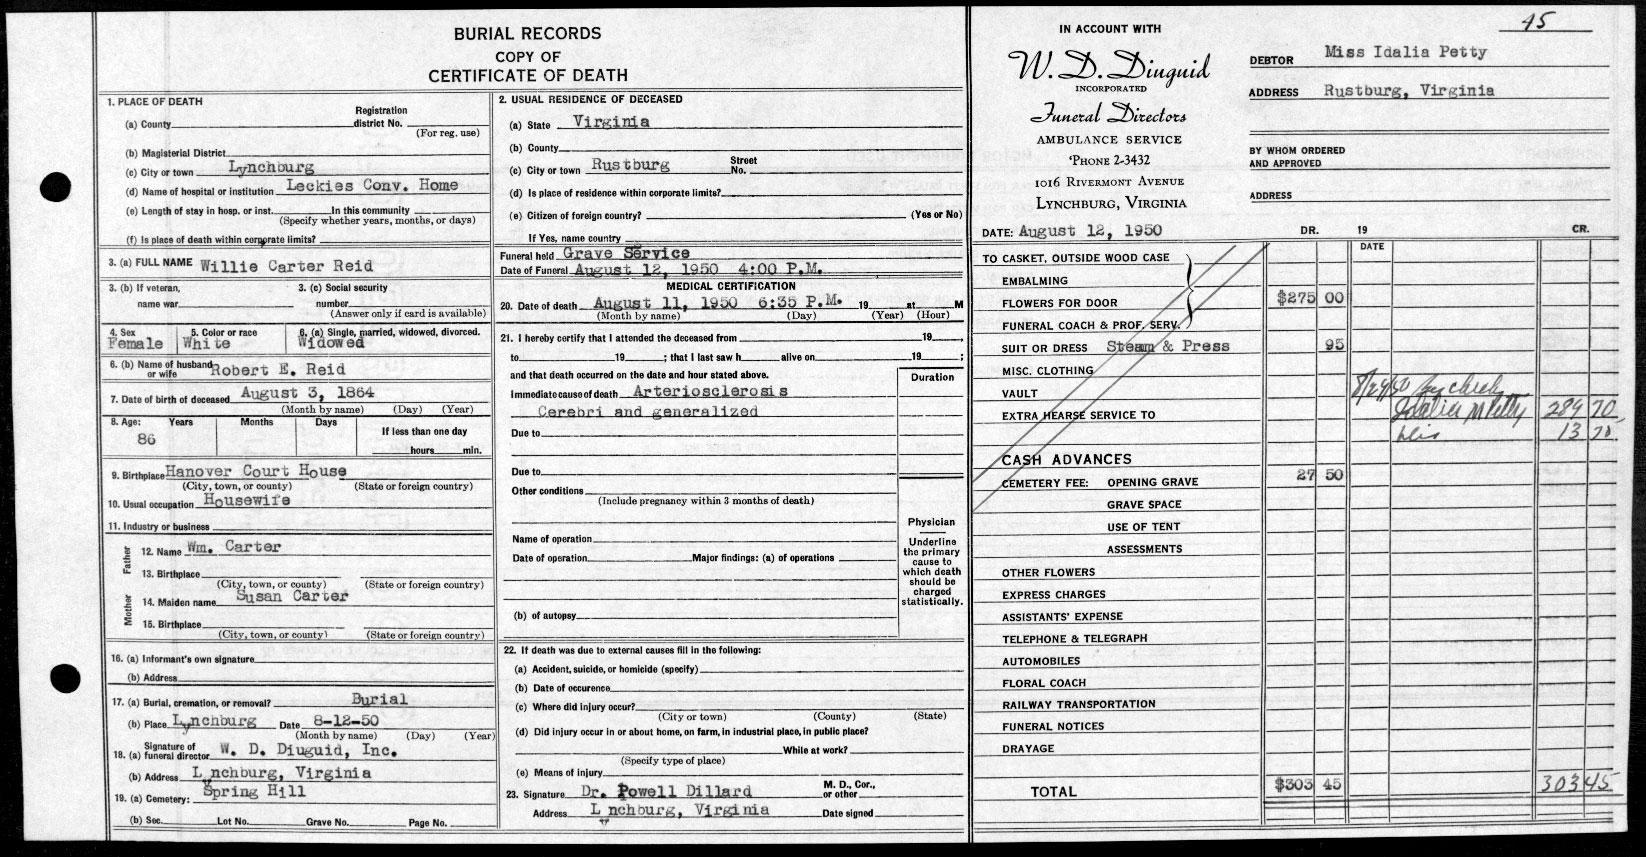 BURIAL RECORDS
COPY OF
CERTIFICATE OF DEATH
1. PLACE OF DEATH
(a) County
Registration district No.
(For reg. use)
(b) Magisterial District
(c) City or town Lynchburg
(d) Name of hospital or institution Leckies Conv. Home
(e) Length of stay in hosp. or inst. In this community
(Specify whether years, months, or days)
(f) Is place of death within corporate limits?
3. (a) FULL NAME Willie Carter Reid
3. (b) If veteran, 3. (c) Social security
name war number
(Answer only if card is available)
4. Sex 5. Color or race 6. (a) Single, married, widowed, divorced.
Female White Widowed
6. (b) Name of husband or wife Robert E. Reid
7. Date of birth of deceased August 3, 1864
(Month by name) (Day) (Year)
8. Age: Years Months Days If less than one day
86
hours min.
9. Birthplace Hanover Court House
(City, town, or county) (State or foreign country)
10. Usual occupation Housewife
11. Industry or business
Father
12. Name Wm. Carter
13. Birthplace
(City, town, or county) (State or foreign country)
Mother
14. Maiden name Susan Carter
15. Birthplace
(City, town, or county) (State or foreign country)
16. (a) Informant's own signature
(b) Address
17. (a) Burial, cremation, or removal? Burial
(b) Place Lynchburg Date 8-12-50
(Month by name) (Day) (Year)
18. (a) Signature of funeral director W. D. Diuguid, Inc.
(b) Address Lynchburg, Virginia
19. (a) Cemetery: Spring Hill
(b) Sec. Lot No. Grave No. Page No.
2. USUAL RESIDENCE OF DECEASED
(a) State Virginia
(b) County
(c) City or town Rustburg Street No.
(d) Is place of residence within corporate limits?
(e) Citizen of foreign country? (Yes or No)
If Yes, name country
Funeral held Grave Service
Date of Funeral August 12, 1950 4:00 P.M.
MEDICAL CERTIFICATION
20. Date of death August 11, 1950 6:35 P.M. 19 at M
(Month by name) (Day) (Year) (Hour)
21. I hereby certify that I attended the deceased from 19 ,
to 19 ; that I last saw h alive on 19 ;
and that death occurred on the date and hour stated above.
Duration
Immediate cause of death Arteriosclerosis
Cerebri and generalized
Due to
Due to
Other conditions
(Include pregnancy within 3 months of death)
Name of operation
Date of operation Major findings: (a) of operations
(b) of autopsy
Physician
Underline
the primary
cause to
which death
should be
charged
statistically.
22. If death was due to external causes fill in the following:
(a) Accident, suicide, or homicide (specify)
(b) Date of occurence
(c) Where did injury occur?
(City or town) (County) (State)
(d) Did injury occur in or about home, on farm, in industrial place, in public place?
While at work?
(Specify type of place)
(e) Means of injury
23. Signature Dr. Powell Dillard M. D., Cor., or other
Address Lynchburg, Virginia Date signed
IN ACCOUNT WITH
W. D. Diuguid
INCORPORATED
Funeral Directors
AMBULANCE SERVICE
'PHONE 2-3432
1016 RIVERMONT AVENUE
LYNCHBURG, VIRGINIA
45
DEBTOR Miss Idalia Petty
ADDRESS Rustburg, Virginia
BY WHOM ORDERED
AND APPROVED
ADDRESS
DATE: August 12, 1950 DR. 19 CR.
DATE
TO CASKET, OUTSIDE WOOD CASE
EMBALMING
FLOWERS FOR DOOR $275 00
FUNERAL COACH & PROF. SERV.
SUIT OR DRESS Steam & Press 95
MISC. CLOTHING
VAULT 8/29/50 By check
EXTRA HEARSE SERVICE TO Idalia M Petty 289 70
Dis 13 75
CASH ADVANCES
CEMETERY FEE: OPENING GRAVE 27 50
GRAVE SPACE
USE OF TENT
ASSESSMENTS
OTHER FLOWERS
EXPRESS CHARGES
ASSISTANTS' EXPENSE
TELEPHONE & TELEGRAPH
AUTOMOBILES
FLORAL COACH
RAILWAY TRANSPORTATION
FUNERAL NOTICES
DRAYAGE
TOTAL $303 45 303 45